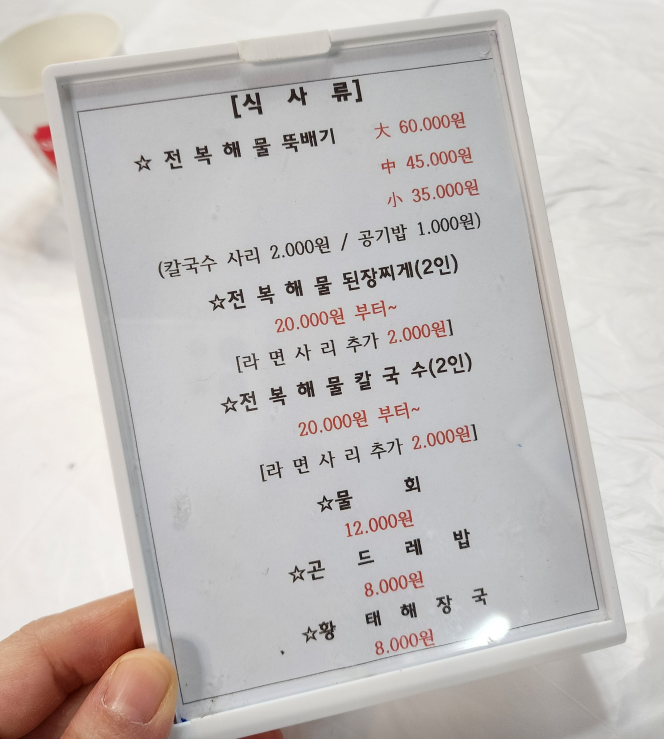 [식 사 류]
☆ 전 복 해 물 뚝배기 大 60.000원
中 45.000원
小 35.000원
(칼국수 사리 2.000원 / 공기밥 1.000원)
☆전 복 해 물 된장찌게(2인)
20.000원 부터~
[라 면 사 리 추가 2.000원]
☆전 복 해 물 칼 국 수(2인)
20.000원 부터~
[라 면 사 리 추가 2.000원]
☆물 회
12.000원
☆곤 드 레 밥
8.000원
☆황 태 해 장 국
8.000원